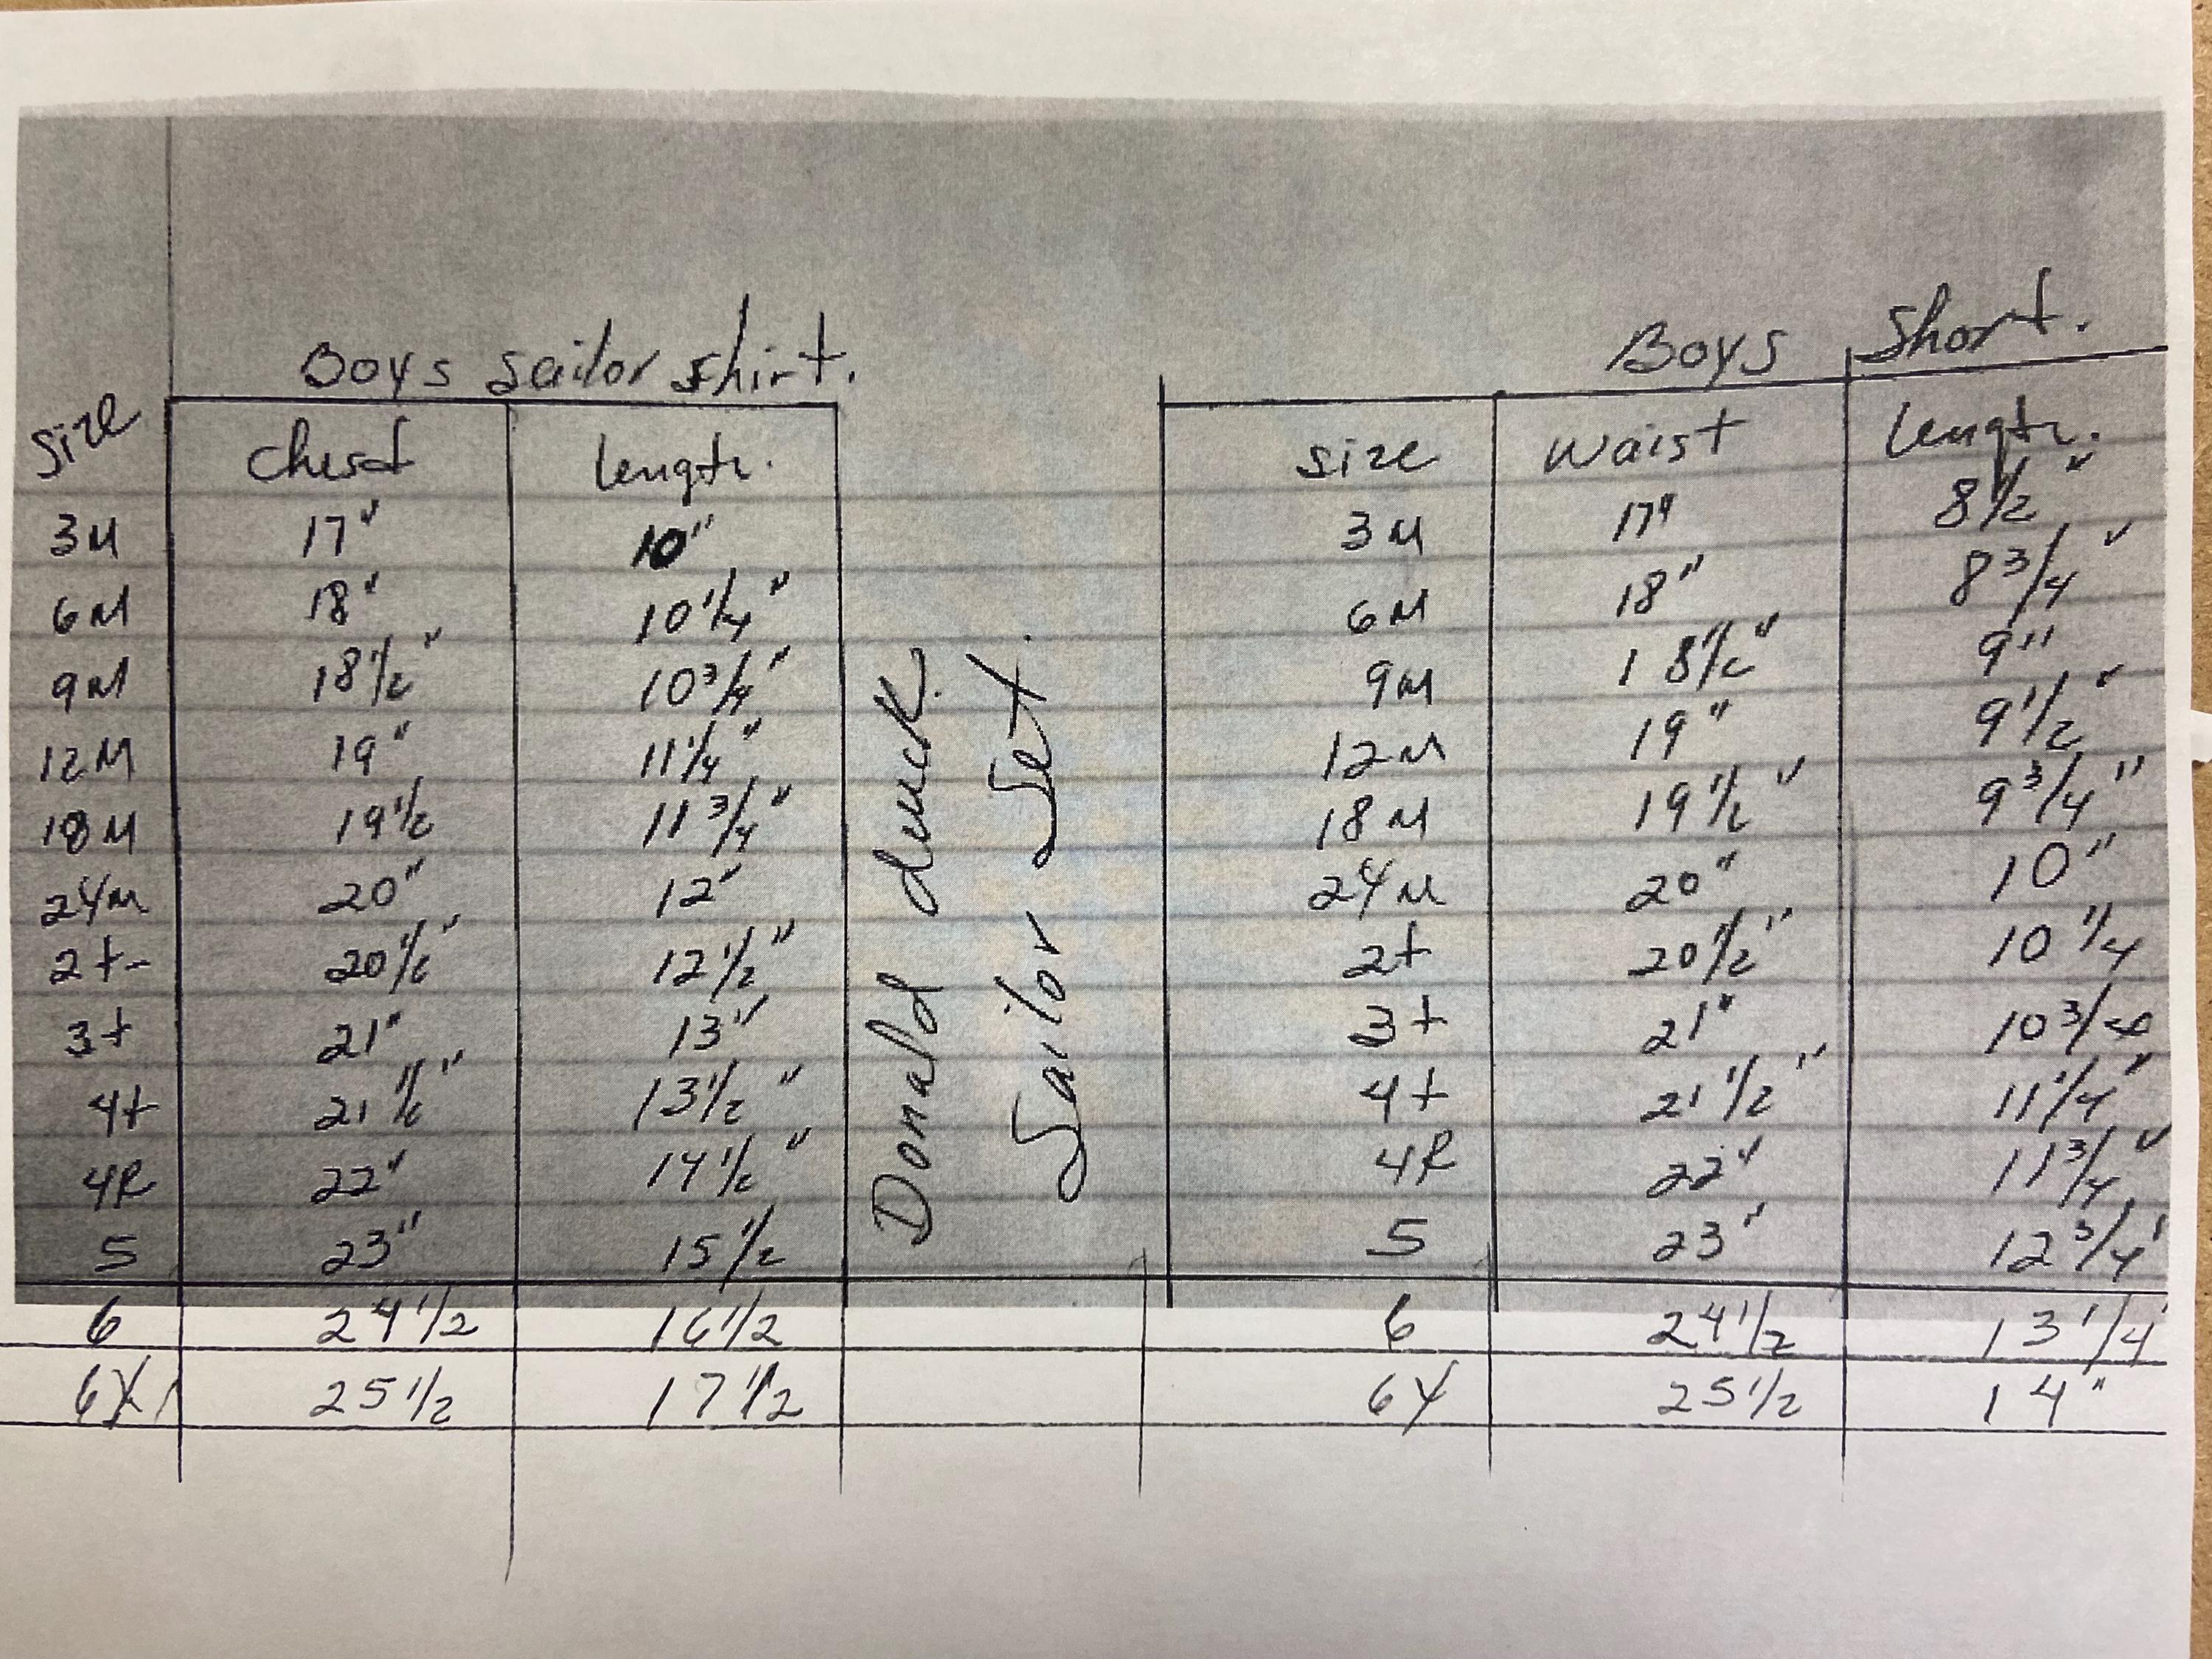 Boys sailor shirt.
Size Chest length.
3M 17" 10"
6M 18" 10 1/4"
9M 18 1/2" 10 3/4"
12M 19" 11 1/4"
18M 19 1/2 11 3/4"
24M 20" 12"
2t- 20 1/2" 12 1/2"
3t 21" 13"
4t 21 1/2" 13 1/2"
4R 22" 14 1/2"
5 23" 15 1/2
6 24 1/2 16 1/2
6X 25 1/2 17 1/2
Donald duck.
Sailor Set.
Boys Short.
size waist length.
3M 17" 8 1/2"
6M 18" 8 3/4"
9M 18 1/2" 9"
12M 19" 9 1/2"
18M 19 1/2" 9 3/4"
24M 20" 10"
2t 20 1/2" 10 1/4
3t 21" 10 3/4
4t 21 1/2" 11 1/4"
4R 22" 11 3/4"
5 23" 12 3/4"
6 24 1/2 13 1/4"
6X 25 1/2 14"